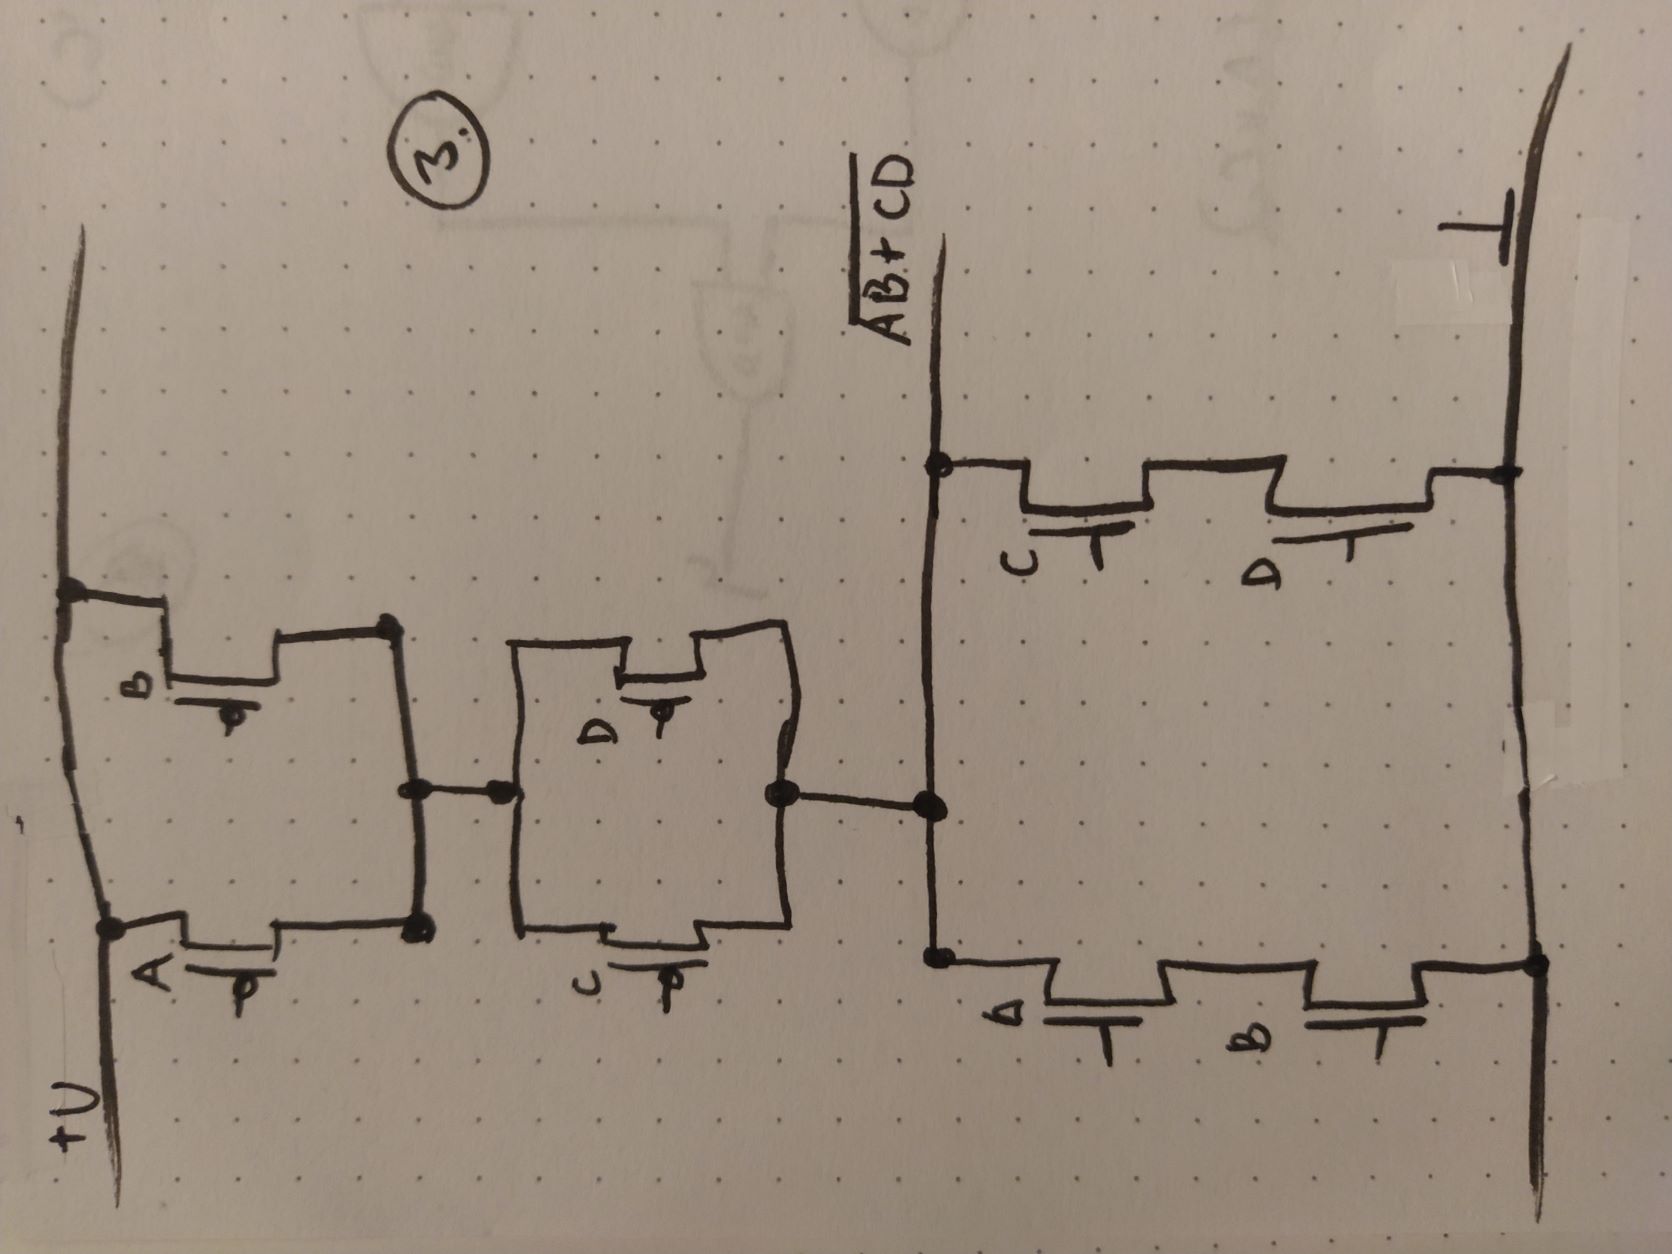 +U
A B
3.
C D
\overline{AB + CD}
A C
B D